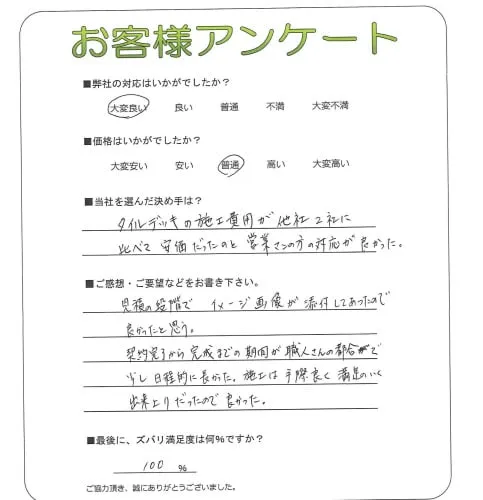 お客様アンケート
■弊社の対応はいかがでしたか？
大変良い 良い 普通 不満 大変不満
■価格はいかがでしたか？
大変安い 安い 普通 高い 大変高い
■当社を選んだ決め手は？
タイルデッキの施工費用が他社2社に
比べて安価だったのと営業さんの方の対応が良かった。
■ご感想・ご要望などをお書き下さい。
見積の段階で イメージ画像が添付してあったので
良かったと思う。
契約完了から完成までの期間が職人さんの都合で
少し日程的に長かった。施工は手際良く満足のいく
出来上りだったので良かった。
■最後に、ズバリ満足度は何%ですか？
100 %
ご協力頂き、誠にありがとうございました。